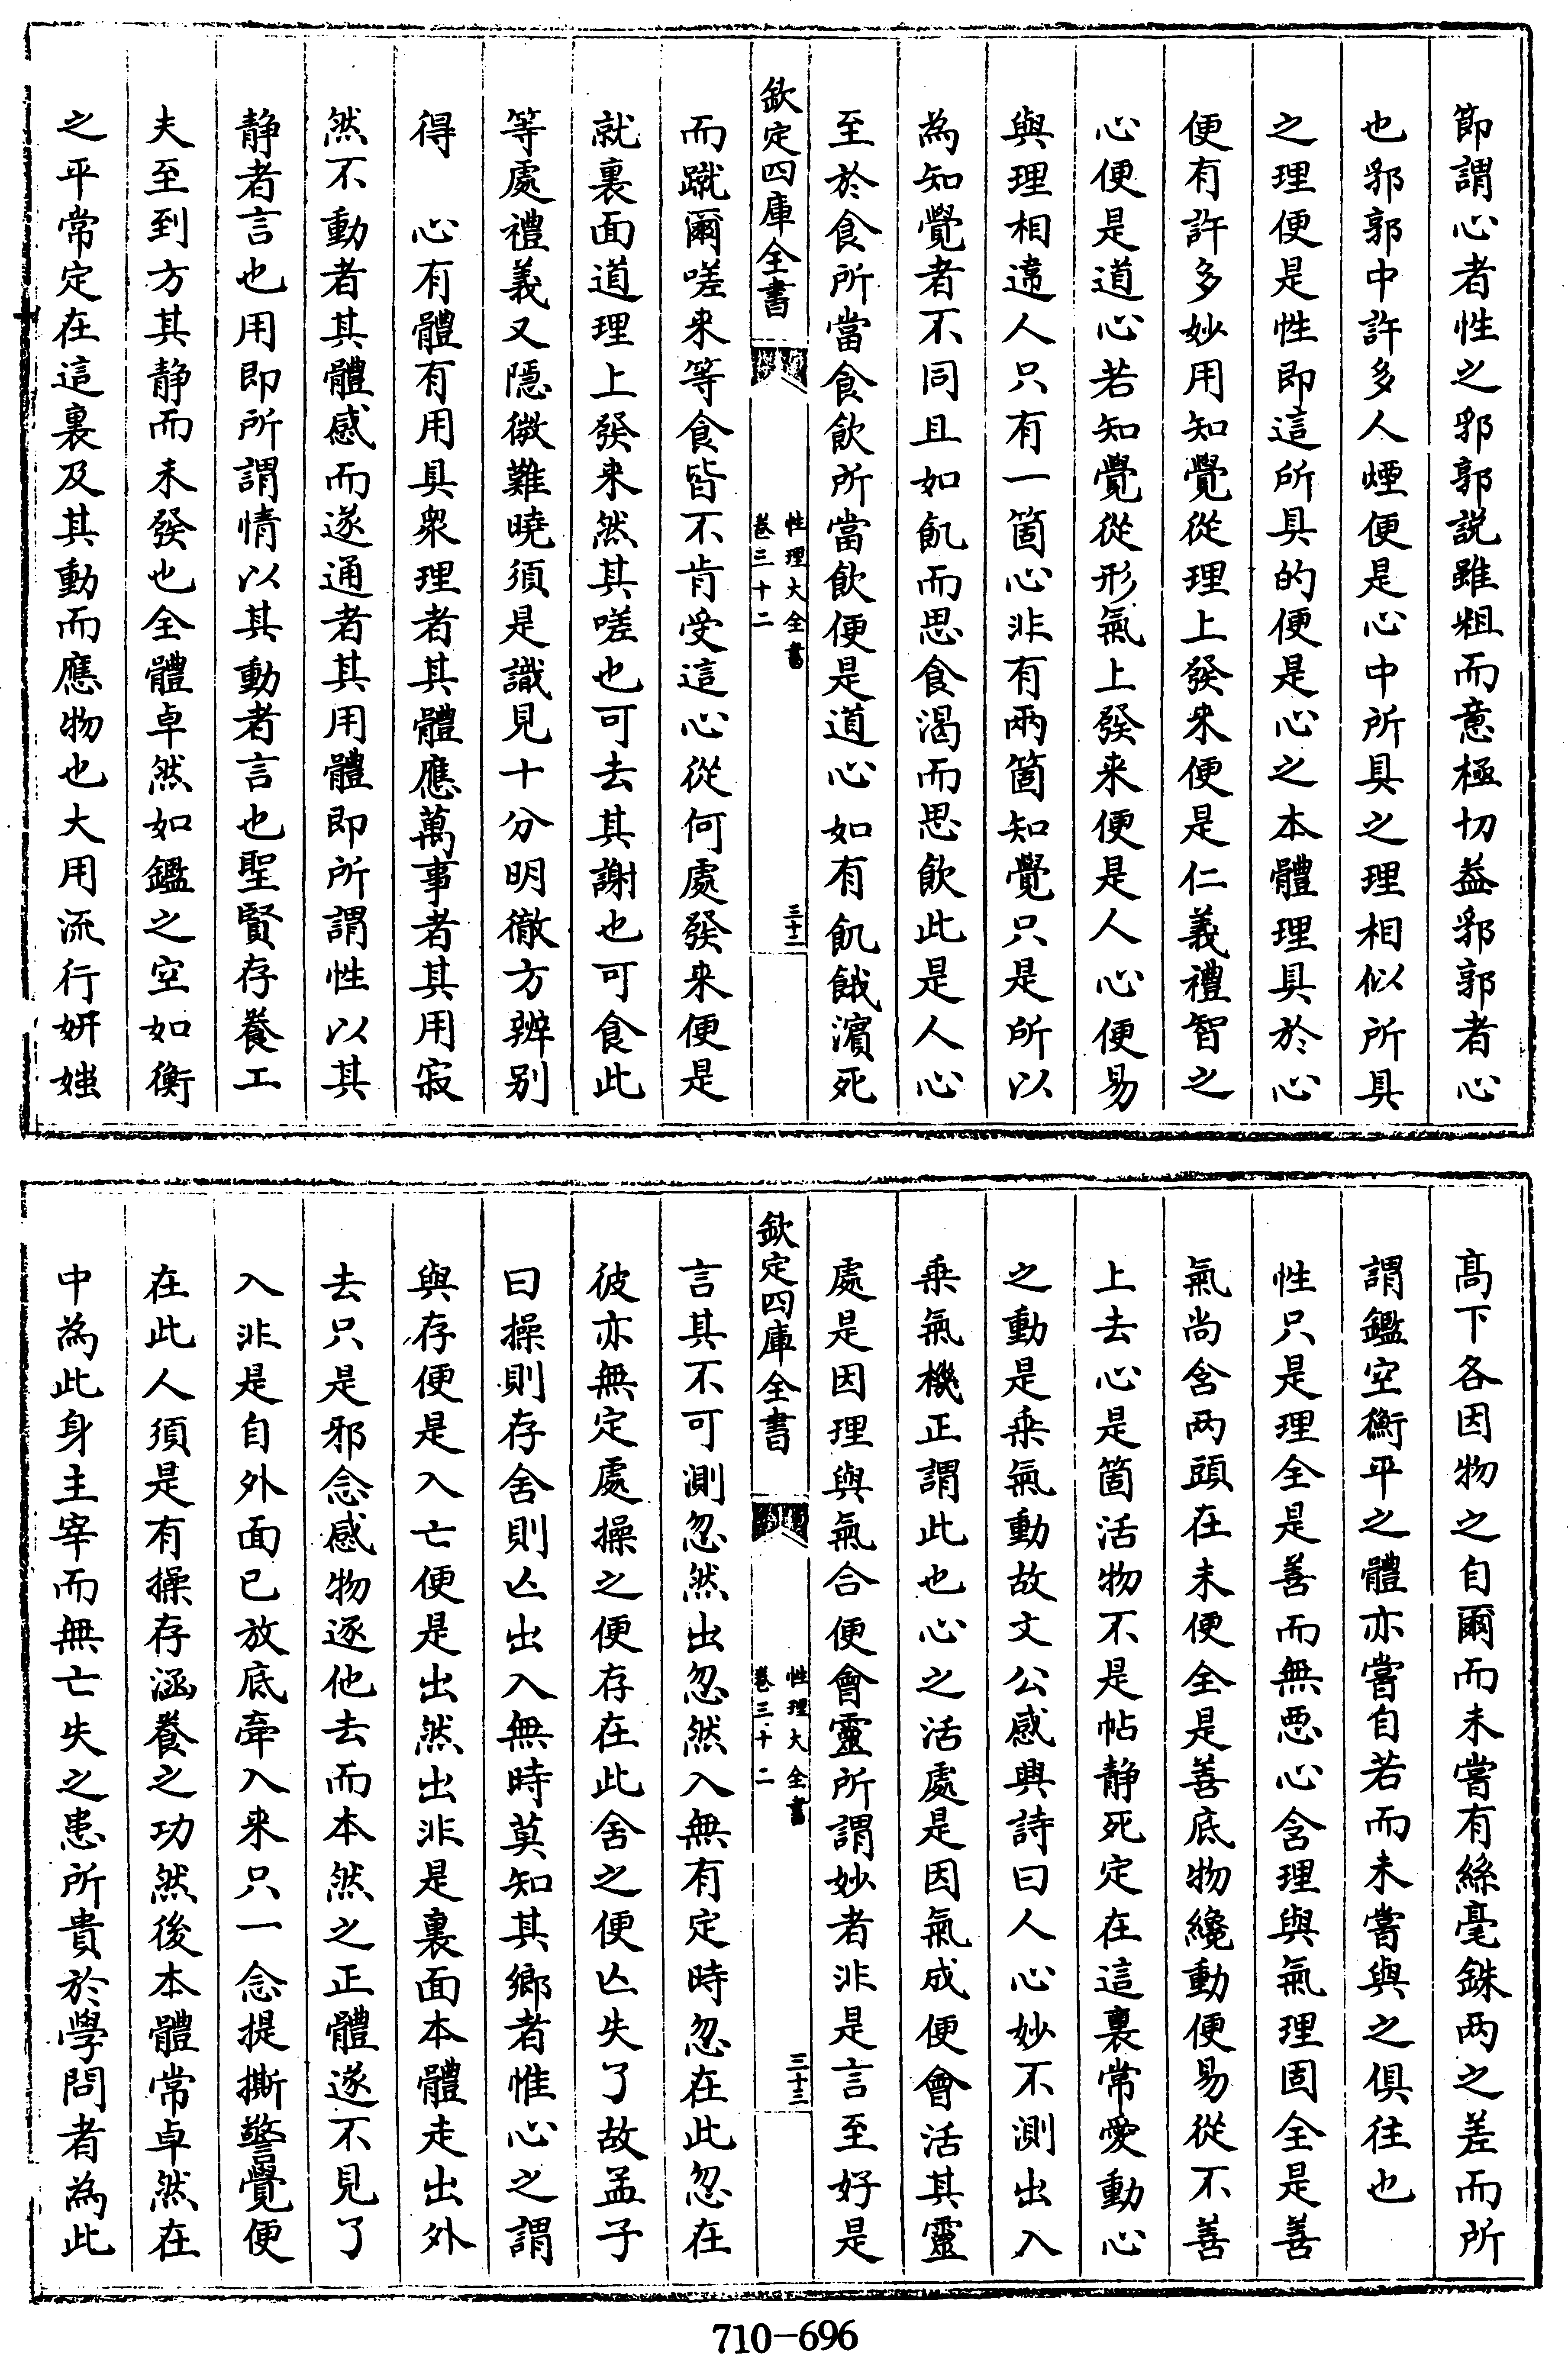 節謂心者性之郛郭説雖粗而意極切葢郛郭者心
也郛郭中許多人煙便是心中所具之理相似所具
之理便是性即這所具的便是心之本體理具於心
便有許多妙用知覺從理上發来便是仁義禮智之
心便是道心若知覺從形氣上發来便是人心便易
與理相違人只有一箇心非有兩箇知覺只是所以
為知覺者不同且如飢而思食渴而思飲此是人心
至於食所當食飲所當飲便是道心如有飢餓濱死
欽定四庫全書
性理大全書
卷三十二
三十二
而蹴爾嗟来等食皆不肯受這心從何處發来便是
就裏面道理上發来然其嗟也可去其謝也可食此
等處禮義又隱微難曉須是識見十分明徹方辨别
得　心有體有用具衆理者其體應萬事者其用寂
然不動者其體感而遂通者其用體即所謂性以其
静者言也用即所謂情以其動者言也聖賢存養工
夫至到方其静而未發也全體卓然如鑑之空如衡
之平常定在這裏及其動而應物也大用流行妍媸
髙下各因物之自爾而未嘗有絲毫銖两之差而所
謂鑑空衡平之體亦嘗自若而未嘗與之俱往也
性只是理全是善而無惡心含理與氣理固全是善
氣尚含两頭在未便全是善底物纔動便易從不善
上去心是箇活物不是帖静死定在這裏常愛動心
之動是乘氣動故文公感興詩曰人心妙不測出入
乘氣機正謂此也心之活處是因氣成便會活其靈
處是因理與氣合便會靈所謂妙者非是言至好是
欽定四庫全書
性理大全書
卷三十二
三十三
言其不可測忽然出忽然入無有定時忽在此忽在
彼亦無定處操之便存在此舍之便亾失了故孟子
曰操則存舍則亾出入無時莫知其鄉者惟心之謂
與存便是入亡便是出然出非是裏面本體走出外
去只是邪念感物逐他去而本然之正體遂不見了
入非是自外面已放底牽入来只一念提撕警覺便
在此人須是有操存涵養之功然後本體常卓然在
中為此身主宰而無亡失之患所貴於學問者為此
710-696